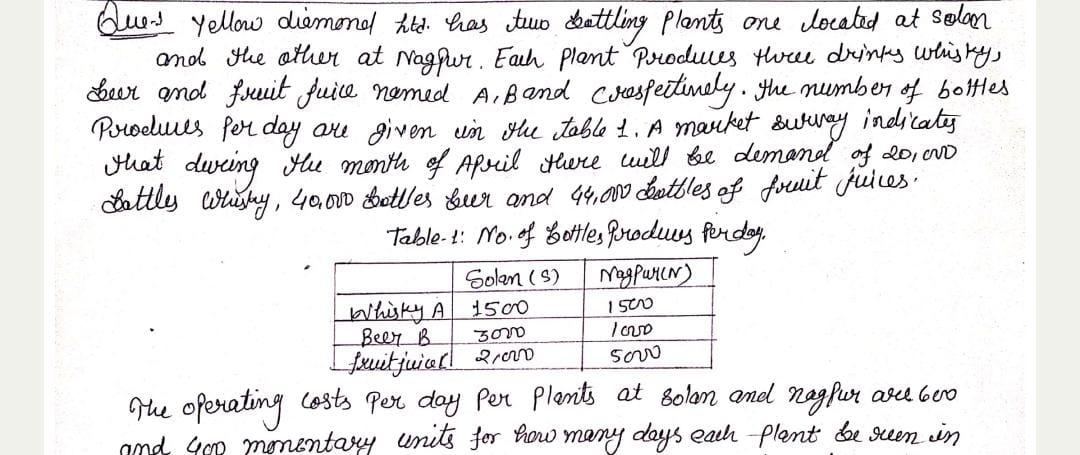 Ques Yellow diamond ltd. has two bottling Plants one located at Solan
and the other at Nagpur. Each Plant Produces three drinks whisky,
beer and fruit juice named A, B and C respectively. The number of bottles
Produces per day are given in the table 1. A market survey indicates
that during the month of April there will be demand of 20,000
bottles whisky, 40,000 bottles beer and 44,000 bottles of fruit juices.
Table-1: No. of bottles Produces per day.
Solan (S) Nagpur(N)
Whisky A 1500 1500
Beer B 3000 1000
fruit juice C 2,000 5000
The operating costs Per day Per Plants at Solan and nagpur are 600
and 400 monentary units for how many days each plant be run in